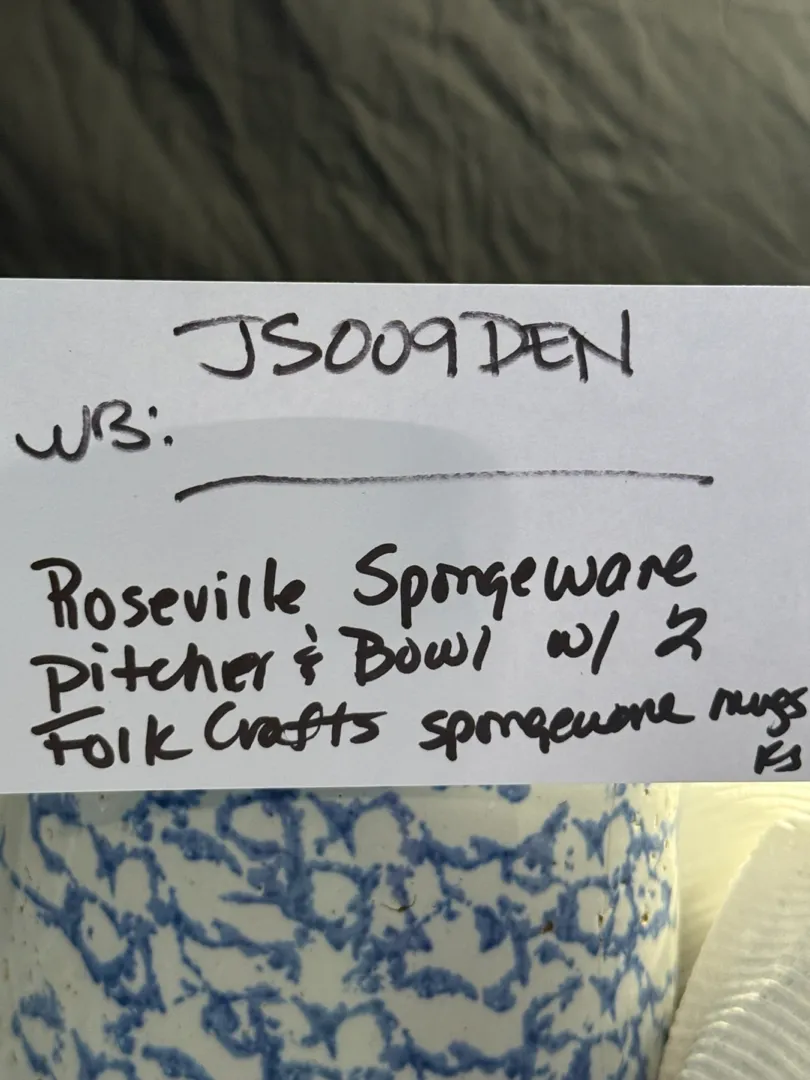 JS009DEN
WB:
Roseville Spongeware
Pitcher & Bowl w/ 2
Folk Crafts spongeware mugs
KS